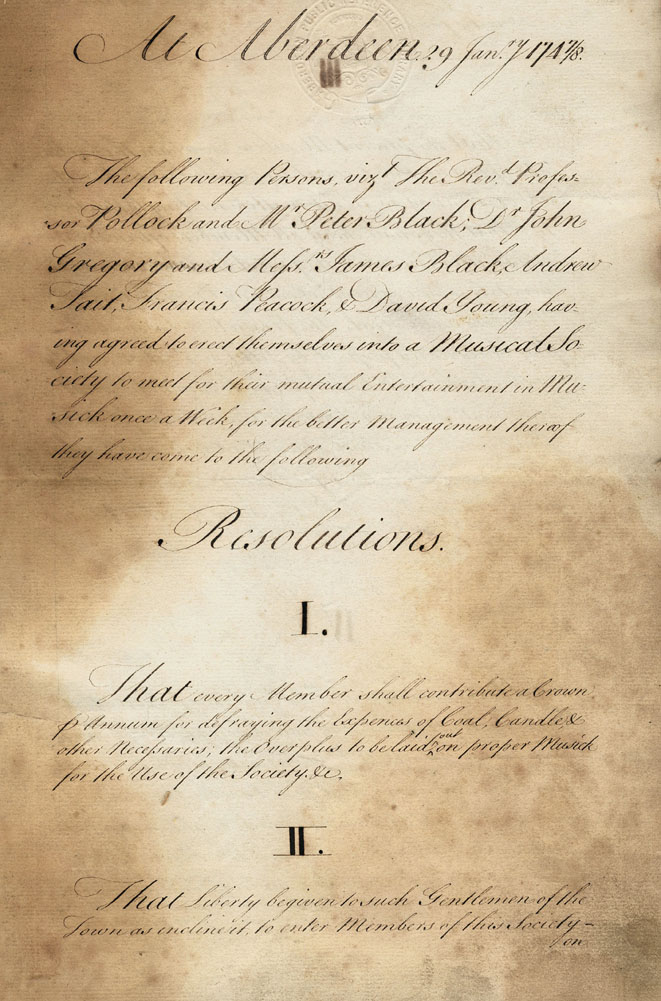 At Aberdeen 29 Jan.ry 1747/8.
The following Persons, vizt The Rev.d Profes-
sor Pollock and Mr Peter Black, Dr John
Gregory and Mess.rs James Black, Andrew
Tait, Francis Peacock, & David Young, hav-
ing agreed to erect themselves into a Musical So-
ciety to meet for their mutual Entertainment in Mu-
sick once a Week, for the better Management thereof
they have come to the following
Resolutions.
I.
That every Member shall contribute a Crown
p Annum for defraying the Expences of Coal, Candle, &
other Necessaries; the Overplus to be laid out on proper Musick
for the Use of the Society. &c.
II.
That Liberty be given to such Gentlemen of the
Town as incline it, to enter Members of this Society —
on